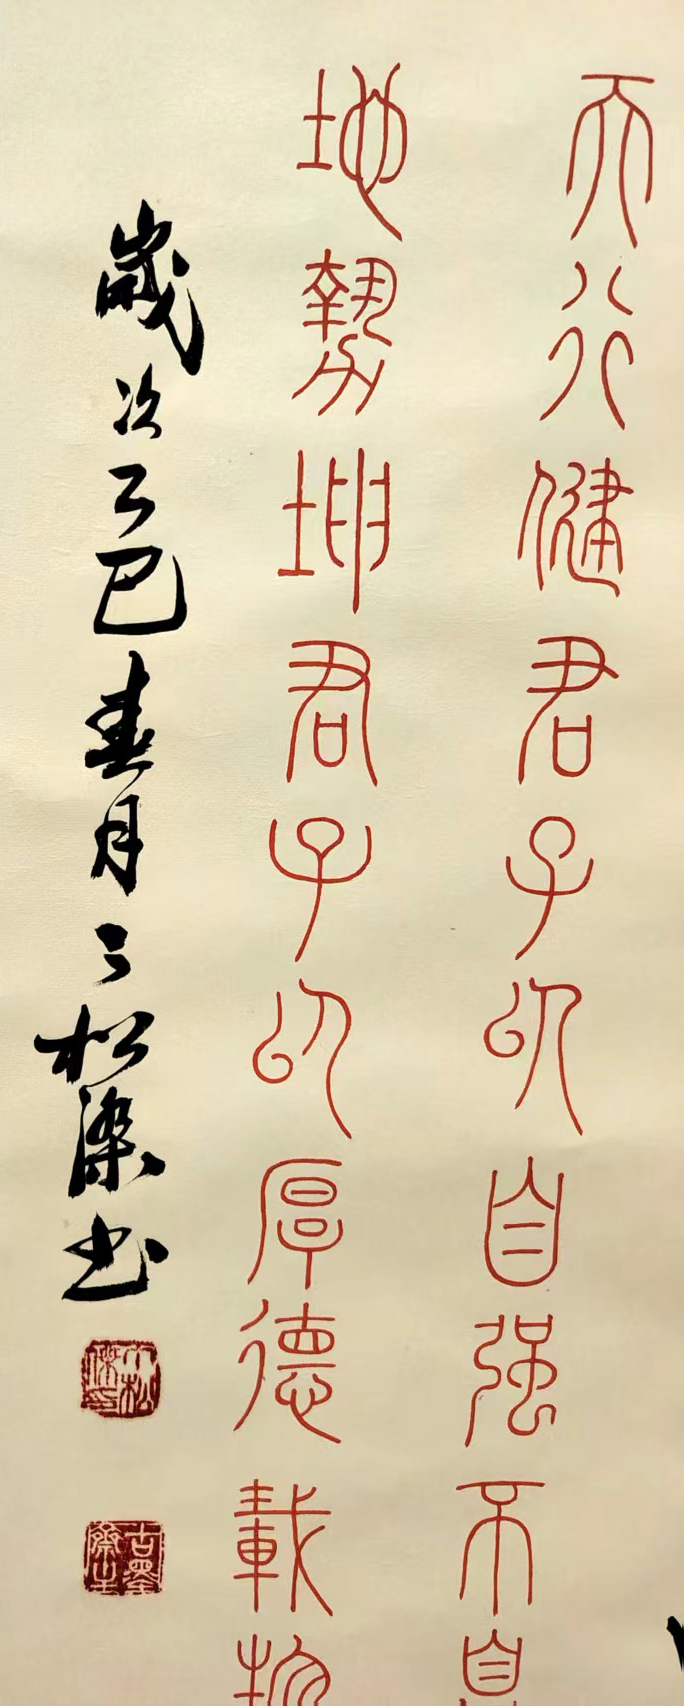 天行健君子以自强不息
地勢坤君子以厚德載物
歲次乙巳春月之松染书